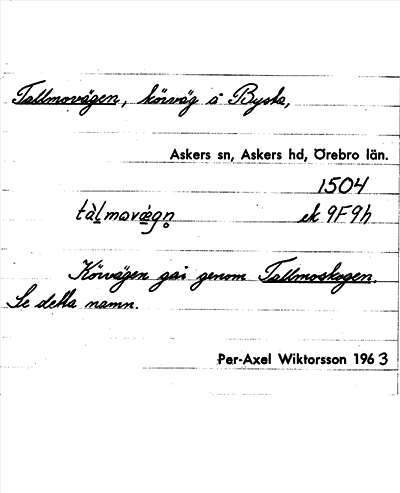 Tallmovägen, körväg å Bysta,
Askers sn, Askers hd, Örebro län.
1504
tàlmovæ̀gn̥ ek 9F9h
Körvägen går genom Tallmoskogen.
Se detta namn.
Per-Axel Wiktorsson 1963